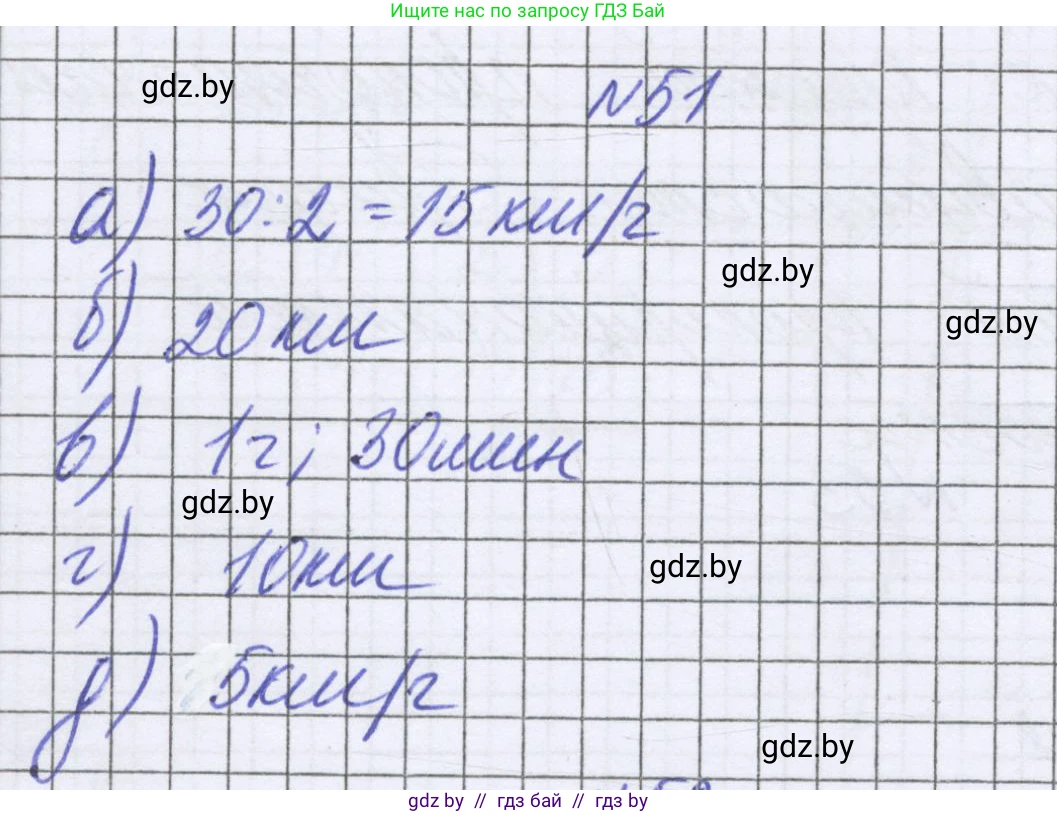 Ищите нас по запросу ГДЗ Бай
gdz.by
№51
а) 30:2=15 км/ч
gdz.by
б) 20 км
gdz.by
в) 1ч; 30мин
gdz.by
г) 10км
gdz.by
д) 5км/ч
gdz.by
gdz by // гдз бай // гдз by